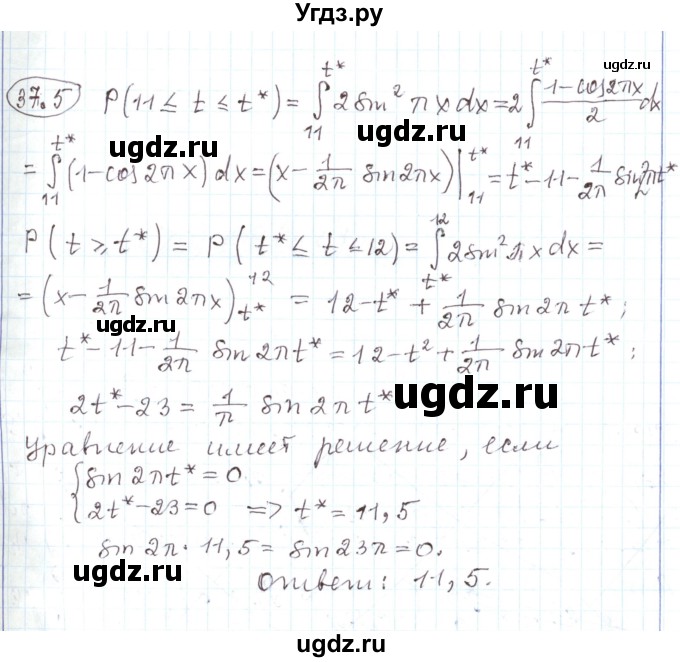 Угдз.ру
ugdz.ru
37.5 P(11 ≤ t ≤ t*) = ∫₁₁^t* 2sin² πx dx = 2∫₁₁^t* (1-cos2πx)/2 dx
ugdz.ru
= ∫₁₁^t* (1-cos2πx)dx = (x - 1/2π sin2πx)|₁₁^t* = t* - 11 - 1/2π sin2πt*
ugdz.ru
ugdz.ru
P(t ≥ t*) = P(t* ≤ t ≤ 12) = ∫_t*^12 2sin²πx dx =
= (x - 1/2π sin2πx)_t*^12 = 12 - t* + 1/2π sin2πt*;
ugdz.ru
t* - 11 - 1/2π sin2πt* = 12 - t² + 1/2π sin2πt*;
2t* - 23 = 1/π sin2πt*
ugdz.ru
Уравнение имеет решение, если
{ sin2πt* = 0
{ 2t* - 23 = 0 => t* = 11,5
sin2π · 11,5 = sin23π = 0.
ugdz.ru
ugdz.ru
Ответ: 11,5.
ugdz.ru